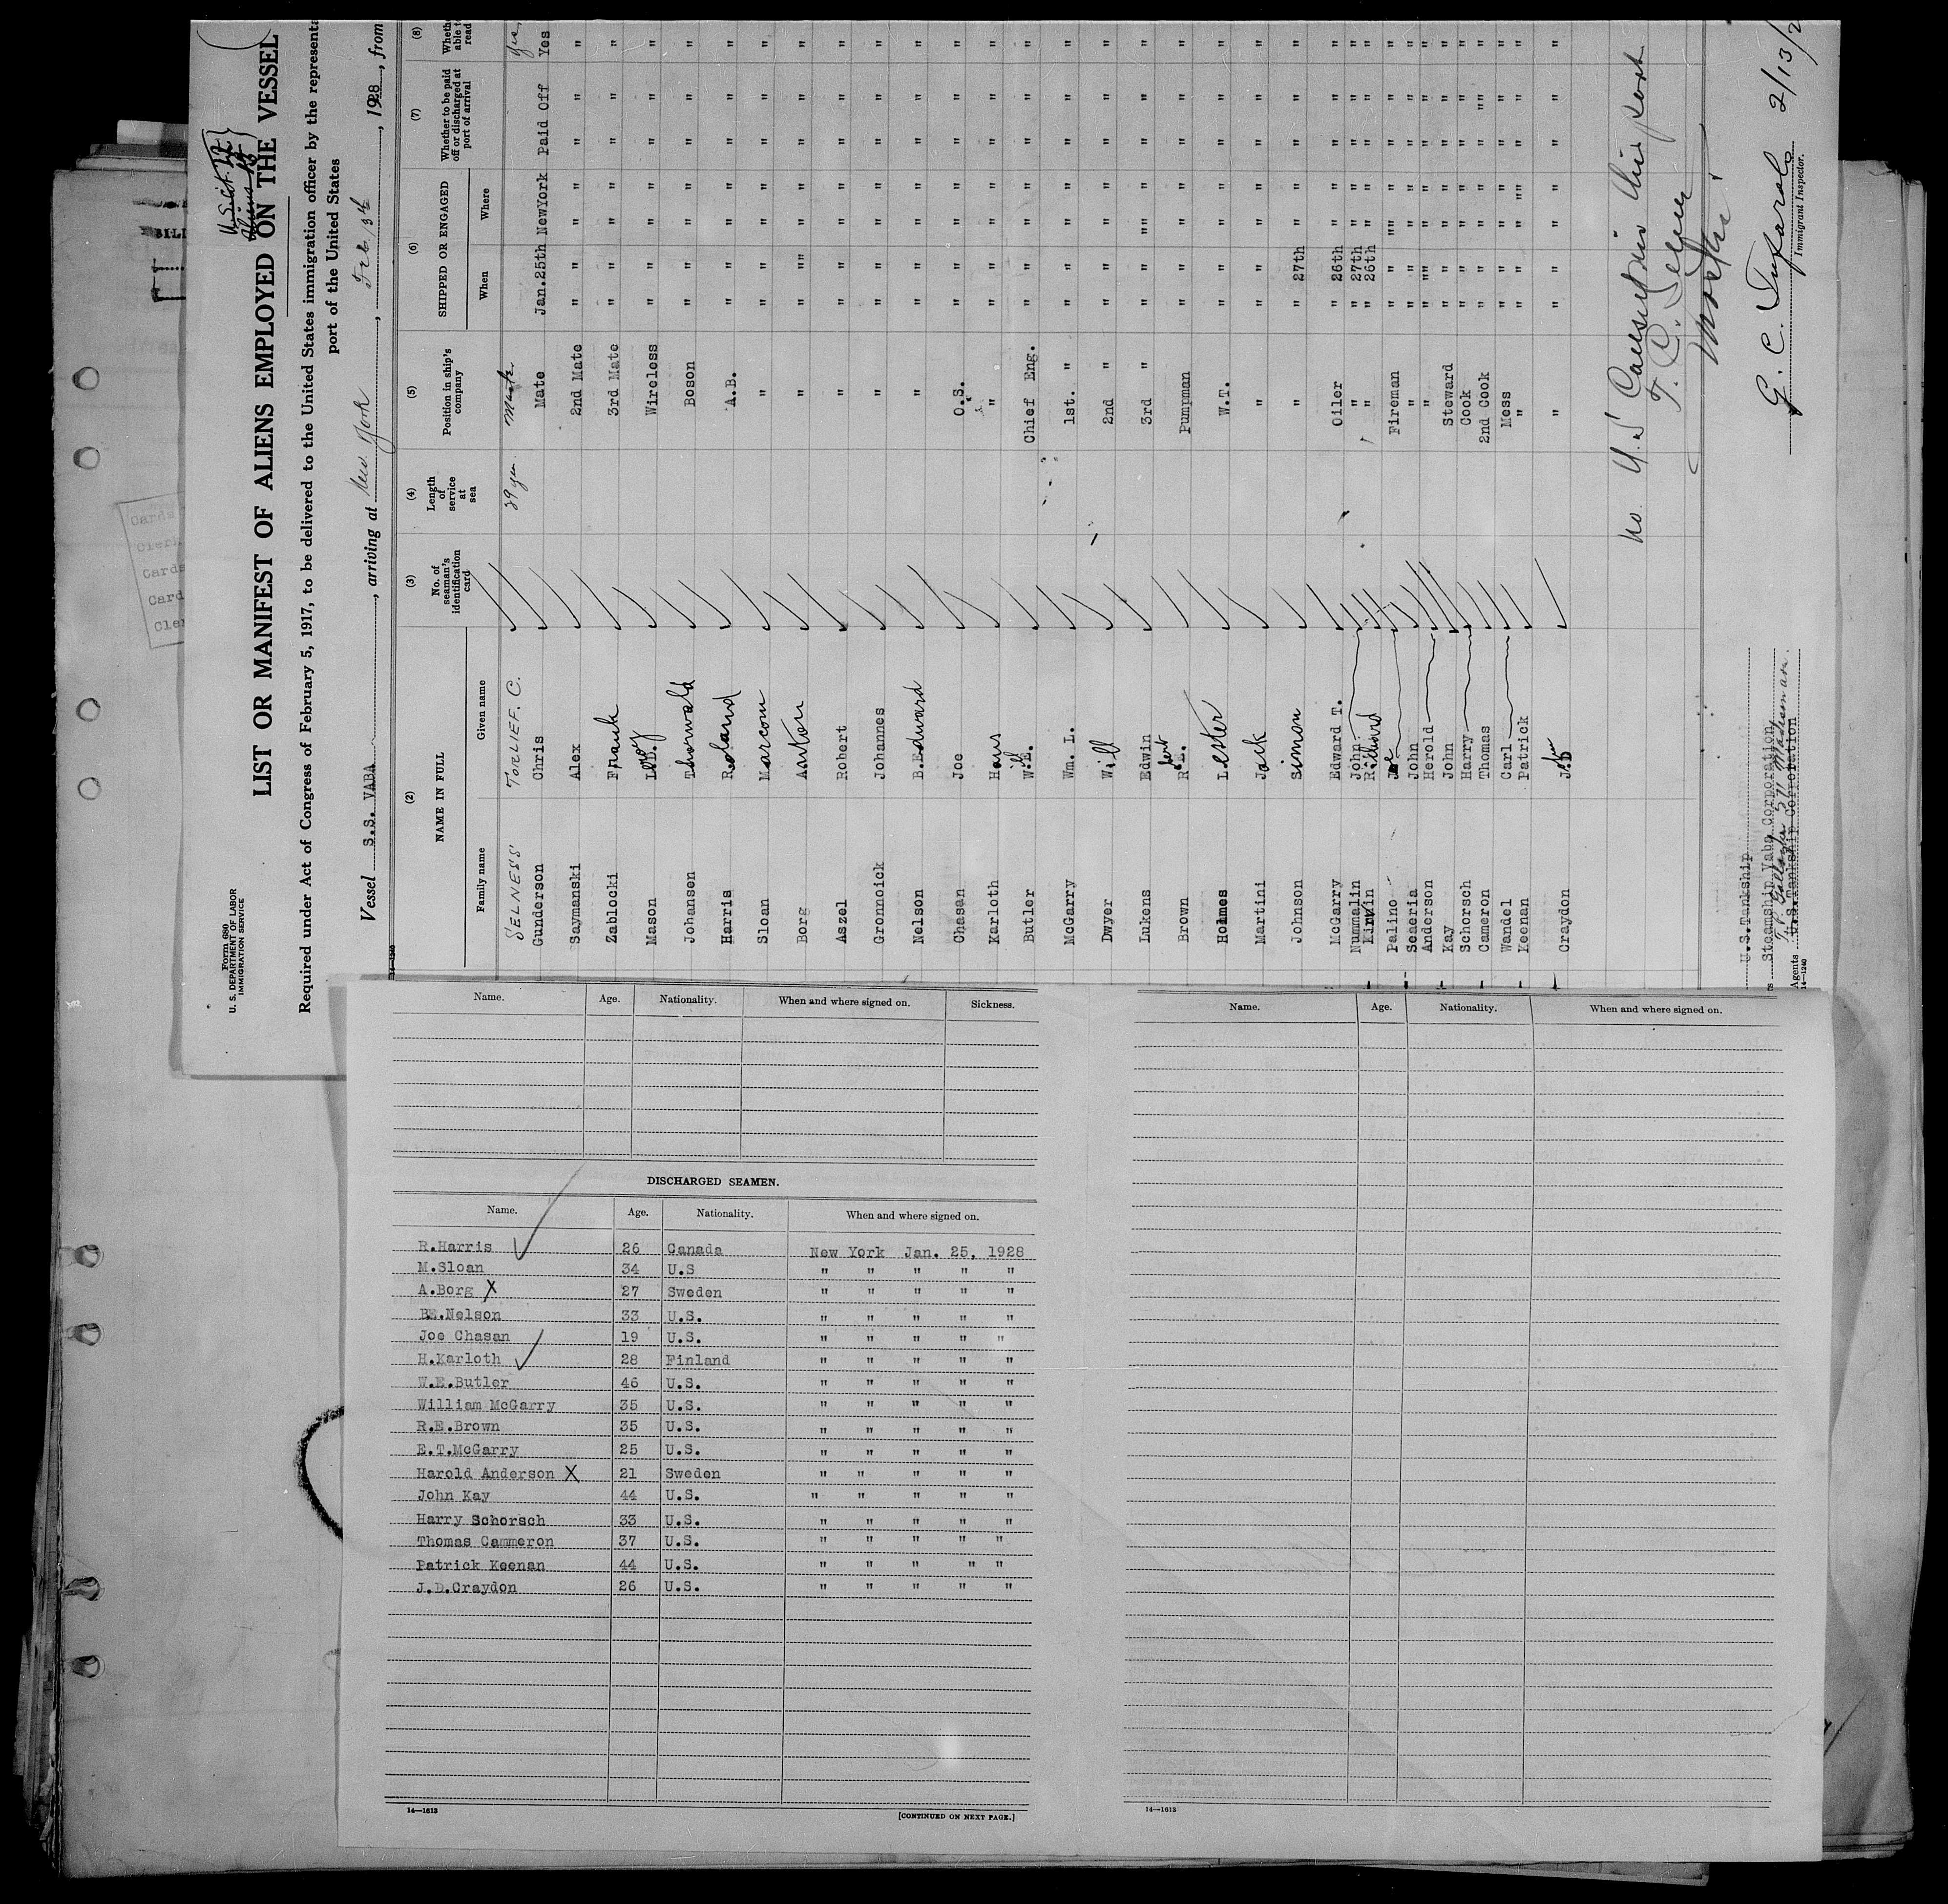 Form 680
U. S. DEPARTMENT OF LABOR
IMMIGRATION SERVICE
LIST OR MANIFEST OF ALIENS EMPLOYED ON THE VESSEL
Required under Act of Congress of February 5, 1917, to be delivered to the United States immigration officer by the representa
port of the United States
Vessel S.S. YABA, arriving at New York, Feb 13th, 1928, from
(2) (3) (4) (5) (6) (7) (8)
NAME IN FULL
Family name Given name
No. of seaman's identification card
Length of service at sea
Position in ship's company
SHIPPED OR ENGAGED
When Where
Whether to be paid off or discharged at port of arrival
SELNESS TORLIEF. C. 29 yrs Yes
Gunderson Chris Mate Jan.25th NewYork Paid Off Yes
Saymanski Alex 2nd Mate " " " " " " "
Zablocki Frank 3rd Mate " " " " " " "
Mason Leroy Wireless " " " " " " "
Johansen Thorwald Boson " " " " " " "
Harris Roland A.B. " " " " " " "
Sloan Marcom " " " " " " " "
Borg Anton " " "" " " " " "
Aszel Robert " " " " " " " "
Gronnoick Johannes " " " " " " " "
Nelson B.Edward " " " " " " " "
Chasan Joe O.S. " " " " " " "
Karloth Hans " " " " " " " "
Butler W.E. Chief Eng. " " " " " " "
McGarry Wm. L. 1st. " " " " " " " "
Dwyer Will 2nd " " " " " " " "
Lukens Edwin 3rd " " " " "" " " "
Brown R.E. Pumpman " " " " " " "
Holmes Lester W.T. " " " " " " "
Martini Jack " " " " " " " "
Johnson Simon " " 27th " " " " "
McGarry Edward T. Oiler " 26th " " " " "
Nummalin John " " 27th " " " " "
Kirwin Richard " " 26th " " " " "
Palino Joe Fireman " " "" " " " "
Seaeria John " " " " " " " "
Anderson Herold " " "" " " " " "
Kay John Steward " " " " " " "
Schorsch Harry Cook " " " " " " "
Cameron Thomas 2nd Cook " " " " " "" "
Wandel Carl Mess " " " " " " "
Keenan Patrick " " " " "" " " "
Craydon J.D " " " " " " " "
No U.S. this port
G. C.
2/13/2
Immigrant Inspector.
U.S.Tankship
Steamship Yaba Corporation
Agents U.S.Tankship Corporation
14—1240
Name. Age. Nationality. When and where signed on. Sickness.
DISCHARGED SEAMEN.
Name. Age. Nationality. When and where signed on.
R.Harris 26 Canada New York Jan. 25, 1928
M.Sloan 34 U.S " " " " "
A.Borg X 27 Sweden " " " " "
BE.Nelson 33 U.S. " " " " "
Joe Chasan 19 U.S. " " " " "
H.Karloth 28 Finland " " " " "
W.E.Butler 46 U.S. " " " " "
William McGarry 35 U.S. " " " " "
R.E.Brown 35 U.S. " " " " "
E.T.McGarry 25 U.S. " " " " "
Harold Anderson X 21 Sweden " " " " "
John Kay 44 U.S. " " " " "
Harry Schorsch 33 U.S. " " " " "
Thomas Cammeron 37 U.S. " " " " "
Patrick Keenan 44 U.S. " " " " "
J.D.Craydon 26 U.S. " " " " "
14—1613 [CONTINUED ON NEXT PAGE.]
Name. Age. Nationality. When and where signed on.
14—1613